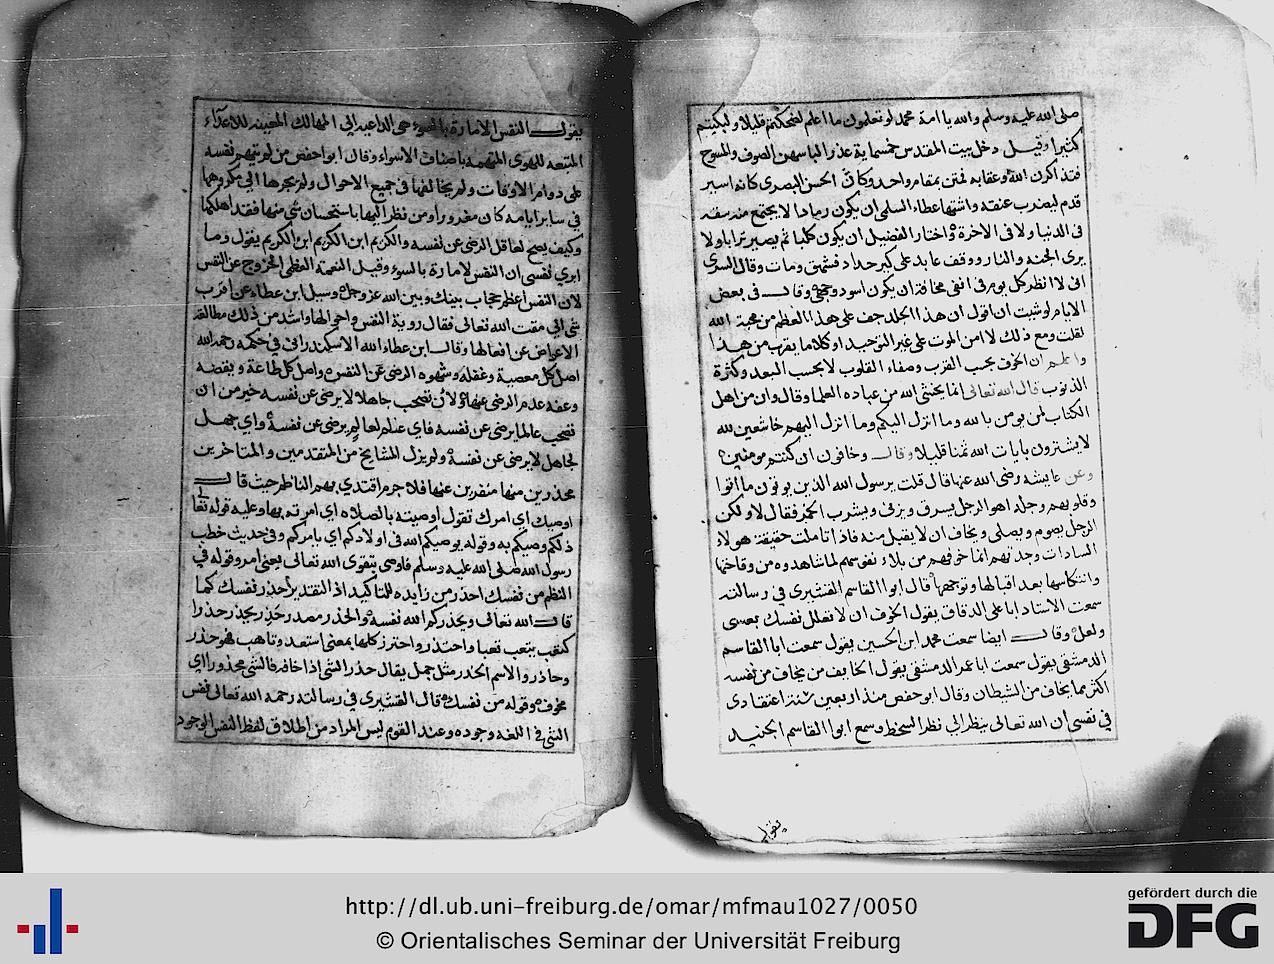 صلى الله عليه وسلم والله يا امة محمد لو تعلمون ما اعلم لضحكتم قليلا ولبكيتم
كثيرا وقيل دخل بيت المقدس خمسماية عذرا لباسهن الصوف والمسوح
فتذاكرن الله وعقابه فمتن بمقام واحد وكان الحسن البصري كانه اسير
قدم ليضرب عنقه واشتها عطاء السلمي ان يكون رمادا لا يجتمع منه سفه
في الدنيا ولا في الاخرة واختار الفضيل ان يكون كلبا ثم يصير ترابا ولا
يرى الجنه والنار ووقف عابد على كير حداد فشهق ومات وقال السري
اني لا انظر كل يوم في انفي مخافة ان يكون اسود وجهي وقال في بعض
الايام لو شيت ان اقول ان هذا الجلد جف على هذا العظم من محبة الله
لقلت ومع ذلك لا امن الموت على غير التوحيد او كلاما يقرب من هذا
واعلم ان الخوف بحسب القرب وصفاء القلوب لا بحسب البعد وكثرة
الذنوب قال الله تعالى انما يخشى الله من عباده العلما وقال وان من اهل
الكتاب لمن يومن بالله وما انزل اليكم وما انزل اليهم خاشعين لله
لا يشترون بايات الله ثمنا قليلا وقال وخافون ان كنتم مومنين
وعن عايشه رضى الله عنها قال قلت يرسول الله الذين يوتون ما اتوا
وقلوبهم وجله اهو الرجل يسرق ويزني ويشرب الخمر فقال لا ولكن
الرجل يصوم ويصلي ويخاف ان لا يقبل منه فاذا تاملت حقيقة هولاء
السادات وجدتهم انما خوفهم من بلاء نفوسهم لما شاهدوه من وقاحتها
وانتكاسها بعد اقبالها وتوجهها قال ابوا القاسم القشيري في رسالته
سمعت الاستاد ابا على الدقاق يقول الخوف ان لا تعلل نفسك بعسى
ولعل وقال ايضا سمعت محمد ابن الحسين يقول سمعت ابا القاسم
الدمشقي يقول سمعت ابا عمر الدمشقي يقول الخايف من يخاف من نفسه
اكثر مما يخاف من الشيطان وقال ابو حفص منذ اربعين سنة اعتقادي
في نفسي ان الله تعالى ينظر الي نظر السخط وسمع ابوا القاسم الجنيد
يقول
يقول النفس الامارة بالسوء هي الداعيه الى المهالك المعينه للاعداء
المتبعه للهوى المتهمه باصناف الاسواء وقال ابوا حفص من لم يتهم نفسه
على دوام الاوقات ولم يخالفها في جميع الاحوال ولم يجرها الى مكروهها
في ساير ايامه كان مغرورا ومن نظر اليها باستحسان شي منها فقد اهلكها
وكيف يصح لعاقل الرضى عن نفسه والكريم ابن الكريم ابن الكريم يقول وما
ابري نفسي ان النفس لامارة بالسوء وقيل النعمة العظمى الخروج عن النفس
لان النفس اعظم حجاب بينك وبين الله عز وجل وسيل ابن عطاء عن اقرب
شي الى مقت الله تعالى فقال روية النفس واحوالها واشد من ذلك مطالعة
الاعواض عن افعالها وقال ابن عطاء الله الاسكندراني في حكمه رحمه الله
اصل كل معصية وغفله وشهوه الرضى عن النفس واصل كل طاعة ويقضه
وعفه عدم الرضى عنها ولان تصحب جاهلا لا يرضى عن نفسه خير من ان
تصحب عالما يرضى عن نفسه فاي علم لعالم يرضى عن نفسه واي جهل
لجاهل لا يرضى عن نفسه ولم يزل المشايخ من المتقدمين والمتاخرين
محذرين منها منفرين عنها فلا جرم اقتدى بهم الناظم حيث قال
اوصيك اي امرك تقول اوصيته بالصلاه اي امرته بها وعليه قوله تعالى
ذلكم وصيكم به وقوله يوصيكم الله في اولادكم اي يامركم وفي حديث خطب
رسول الله صلى الله عليه وسلم فاوصى بتقوى الله تعالى بمعنى امر وقوله في
النظم من نفسك احذر من زايده للتاكيد اذ التقدير احذر نفسك كما
قال الله تعالى ويحذركم الله نفسه والحذر مصدر حذر يحذر حذرا
كتعب يتعب تعبا واحتذر واحترز كلها بمعنى استعد وتاهب فهو حذر
وحاذر والاسم الحذر مثل حمل يقال حذر الشي اذا خافه فالشي محذور اي
مخوف وقوله من نفسك قال القشيري في رسالته رحمه الله تعالى نفس
الشي في اللغه وجوده وعند القوم ليس المراد من اطلاق لفظ النفس الوجود
http://dl.ub.uni-freiburg.de/omar/mfmau1027/0050
© Orientalisches Seminar der Universität Freiburg
gefördert durch die
DFG